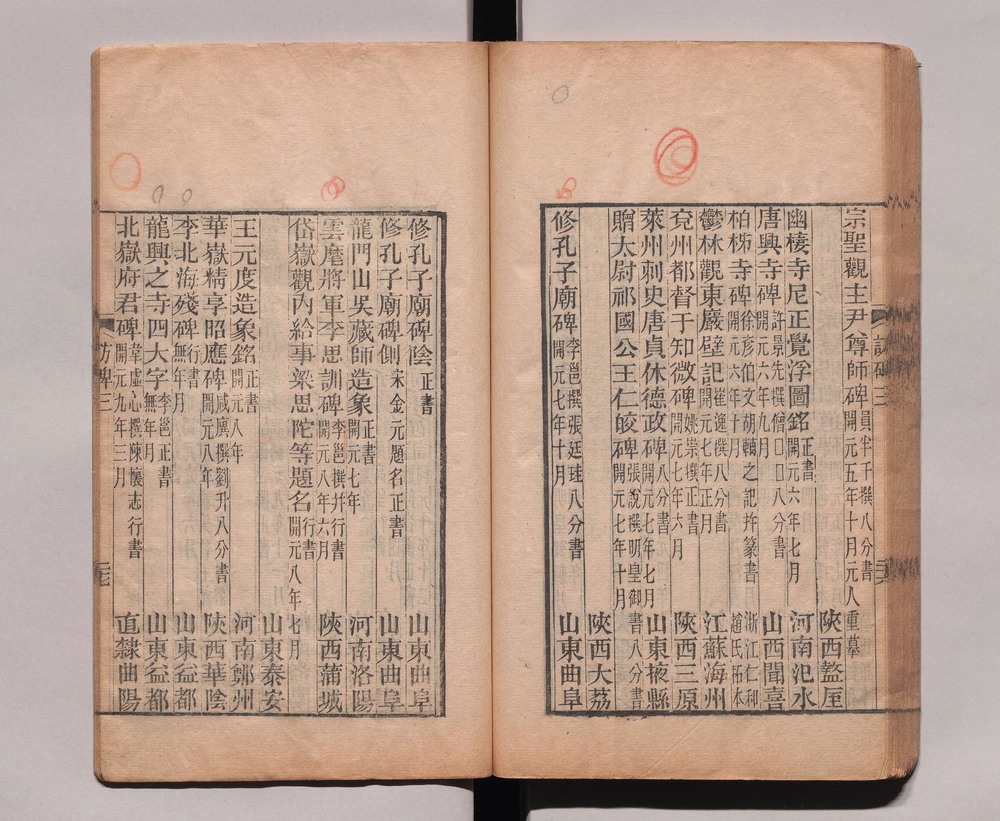 宗聖觀主尹尊師碑員半千撰八分書開元五年十月元人重摹
陝西盩厔
幽棲寺尼正覺浮圖銘正書開元六年七月 河南汜水
唐興寺碑許景先撰僧□□八分書開元六年九月 山西聞喜
柏梯寺碑徐彥伯文胡輔之記幷篆書開元六年十月 浙江仁和趙氏拓本
鬱林觀東巖壁記崔逸撰八分書開元七年正月 江蘇海州
兗州都督于知微碑姚崇撰正書開元七年六月 陝西三原
萊州刺史唐貞休德政碑八分書開元七年七月 山東掖縣
贈太尉祁國公王仁皎碑張說撰明皇御書八分書開元七年十月
陝西大荔
修孔子廟碑李邕撰張廷珪八分書開元七年十月 山東曲阜
修孔子廟碑陰正書 山東曲阜
修孔子廟碑側宋金元題名正書 山東曲阜
龍門山吳藏師造象正書開元七年 河南洛陽
雲麾將軍李思訓碑李邕撰幷行書開元八年六月 陝西蒲城
岱嶽觀內給事梁思陀等題名行書開元八年七月
山東泰安
王元度造象銘正書開元八年 河南鄭州
華嶽精享昭應碑咸廙撰劉升八分書開元八年 陝西華陰
李北海殘碑行書無年月 山東益都
龍興之寺四大字李邕正書無年月 山東益都
北嶽府君碑韋虛心撰陳懷志行書開元九年三月 直隸曲陽
訪碑三